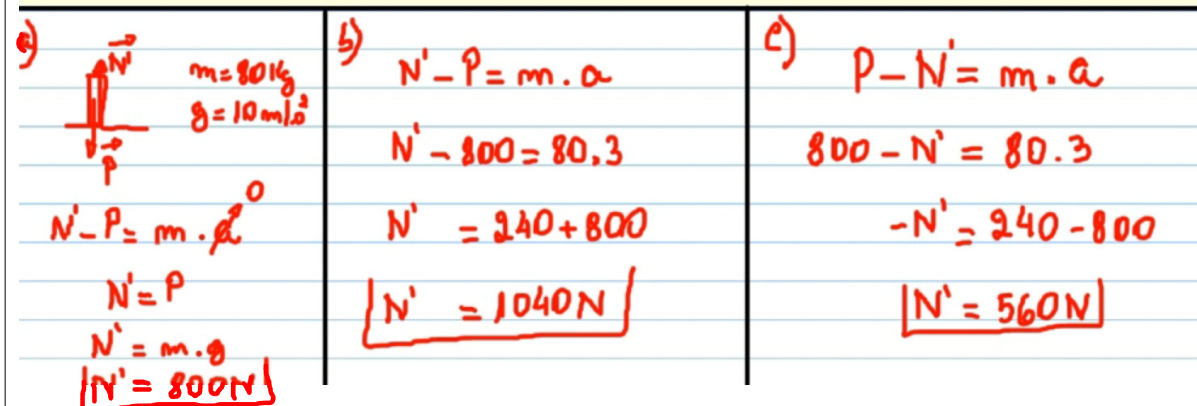 a)
N'
m=80Kg
g=10m/s²
P
N'-P= m.a 0
N'=P
N'= m.g
N'= 800N
b)
N'-P= m.a
N'-800=80.3
N' =240+800
N' =1040N
c)
P-N'= m.a
800-N'= 80.3
-N'= 240-800
N'= 560N